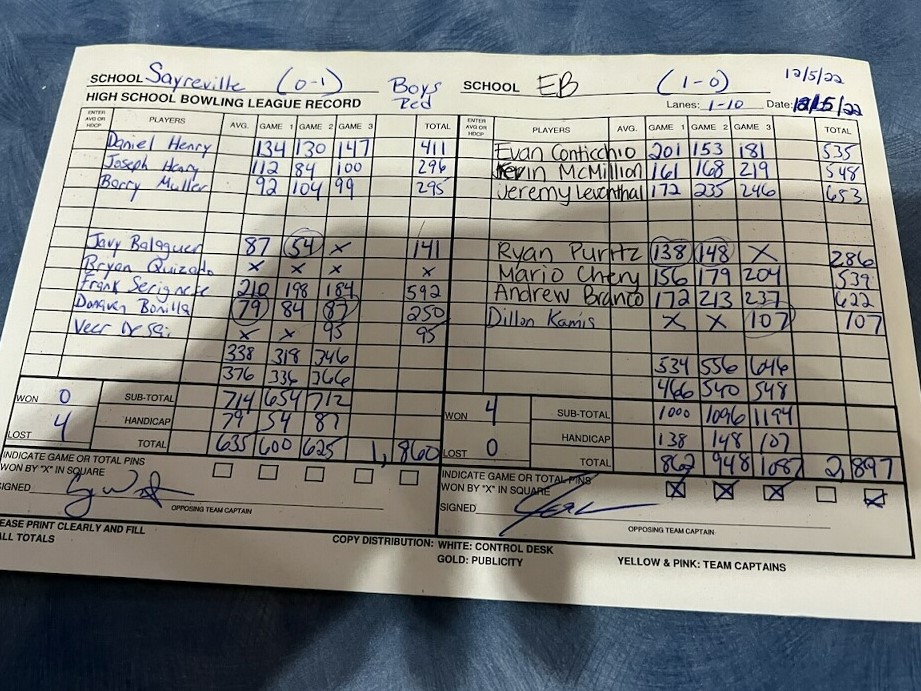 SCHOOL Sayreville (0-1) Boys Red
HIGH SCHOOL BOWLING LEAGUE RECORD
ENTER AVG OR HDCP PLAYERS AVG. GAME 1 GAME 2 GAME 3 TOTAL
Daniel Henry 134 130 147 411
Joseph Henry 112 84 100 296
Barry Muller 92 104 99 295
Javy Balaguer 87 54 x 141
Bryan Quizado x x x x
Frank Serignese 210 198 184 592
Donaven Bonilla 79 84 87 250
Veer Desai x x 95 95
338 318 346
376 336 366
WON 0 SUB-TOTAL 714 654 712
LOST 4 HANDICAP 79 54 87
TOTAL 635 600 625 1,860
INDICATE GAME OR TOTAL PINS
WON BY "X" IN SQUARE
SIGNED
OPPOSING TEAM CAPTAIN
SCHOOL EB (1-0) 12/5/22
Lanes: 1-10 Date: 12/5/22
ENTER AVG OR HDCP PLAYERS AVG. GAME 1 GAME 2 GAME 3 TOTAL
Evan Conticchio 201 153 181 535
Kevin McMillion 161 168 219 548
Jeremy Leventhal 172 235 246 653
Ryan Puritz 138 148 X 286
Mario Chery 156 179 204 539
Andrew Branco 172 213 237 622
Dillon Kamis X X 107 107
534 556 646
466 540 548
WON 4 SUB-TOTAL 1000 1096 1194
LOST 0 HANDICAP 138 148 107
TOTAL 862 948 1087 2,897
INDICATE GAME OR TOTAL PINS
WON BY "X" IN SQUARE X X X X
SIGNED
OPPOSING TEAM CAPTAIN
EASE PRINT CLEARLY AND FILL
ALL TOTALS
COPY DISTRIBUTION: WHITE: CONTROL DESK
GOLD: PUBLICITY
YELLOW & PINK: TEAM CAPTAINS